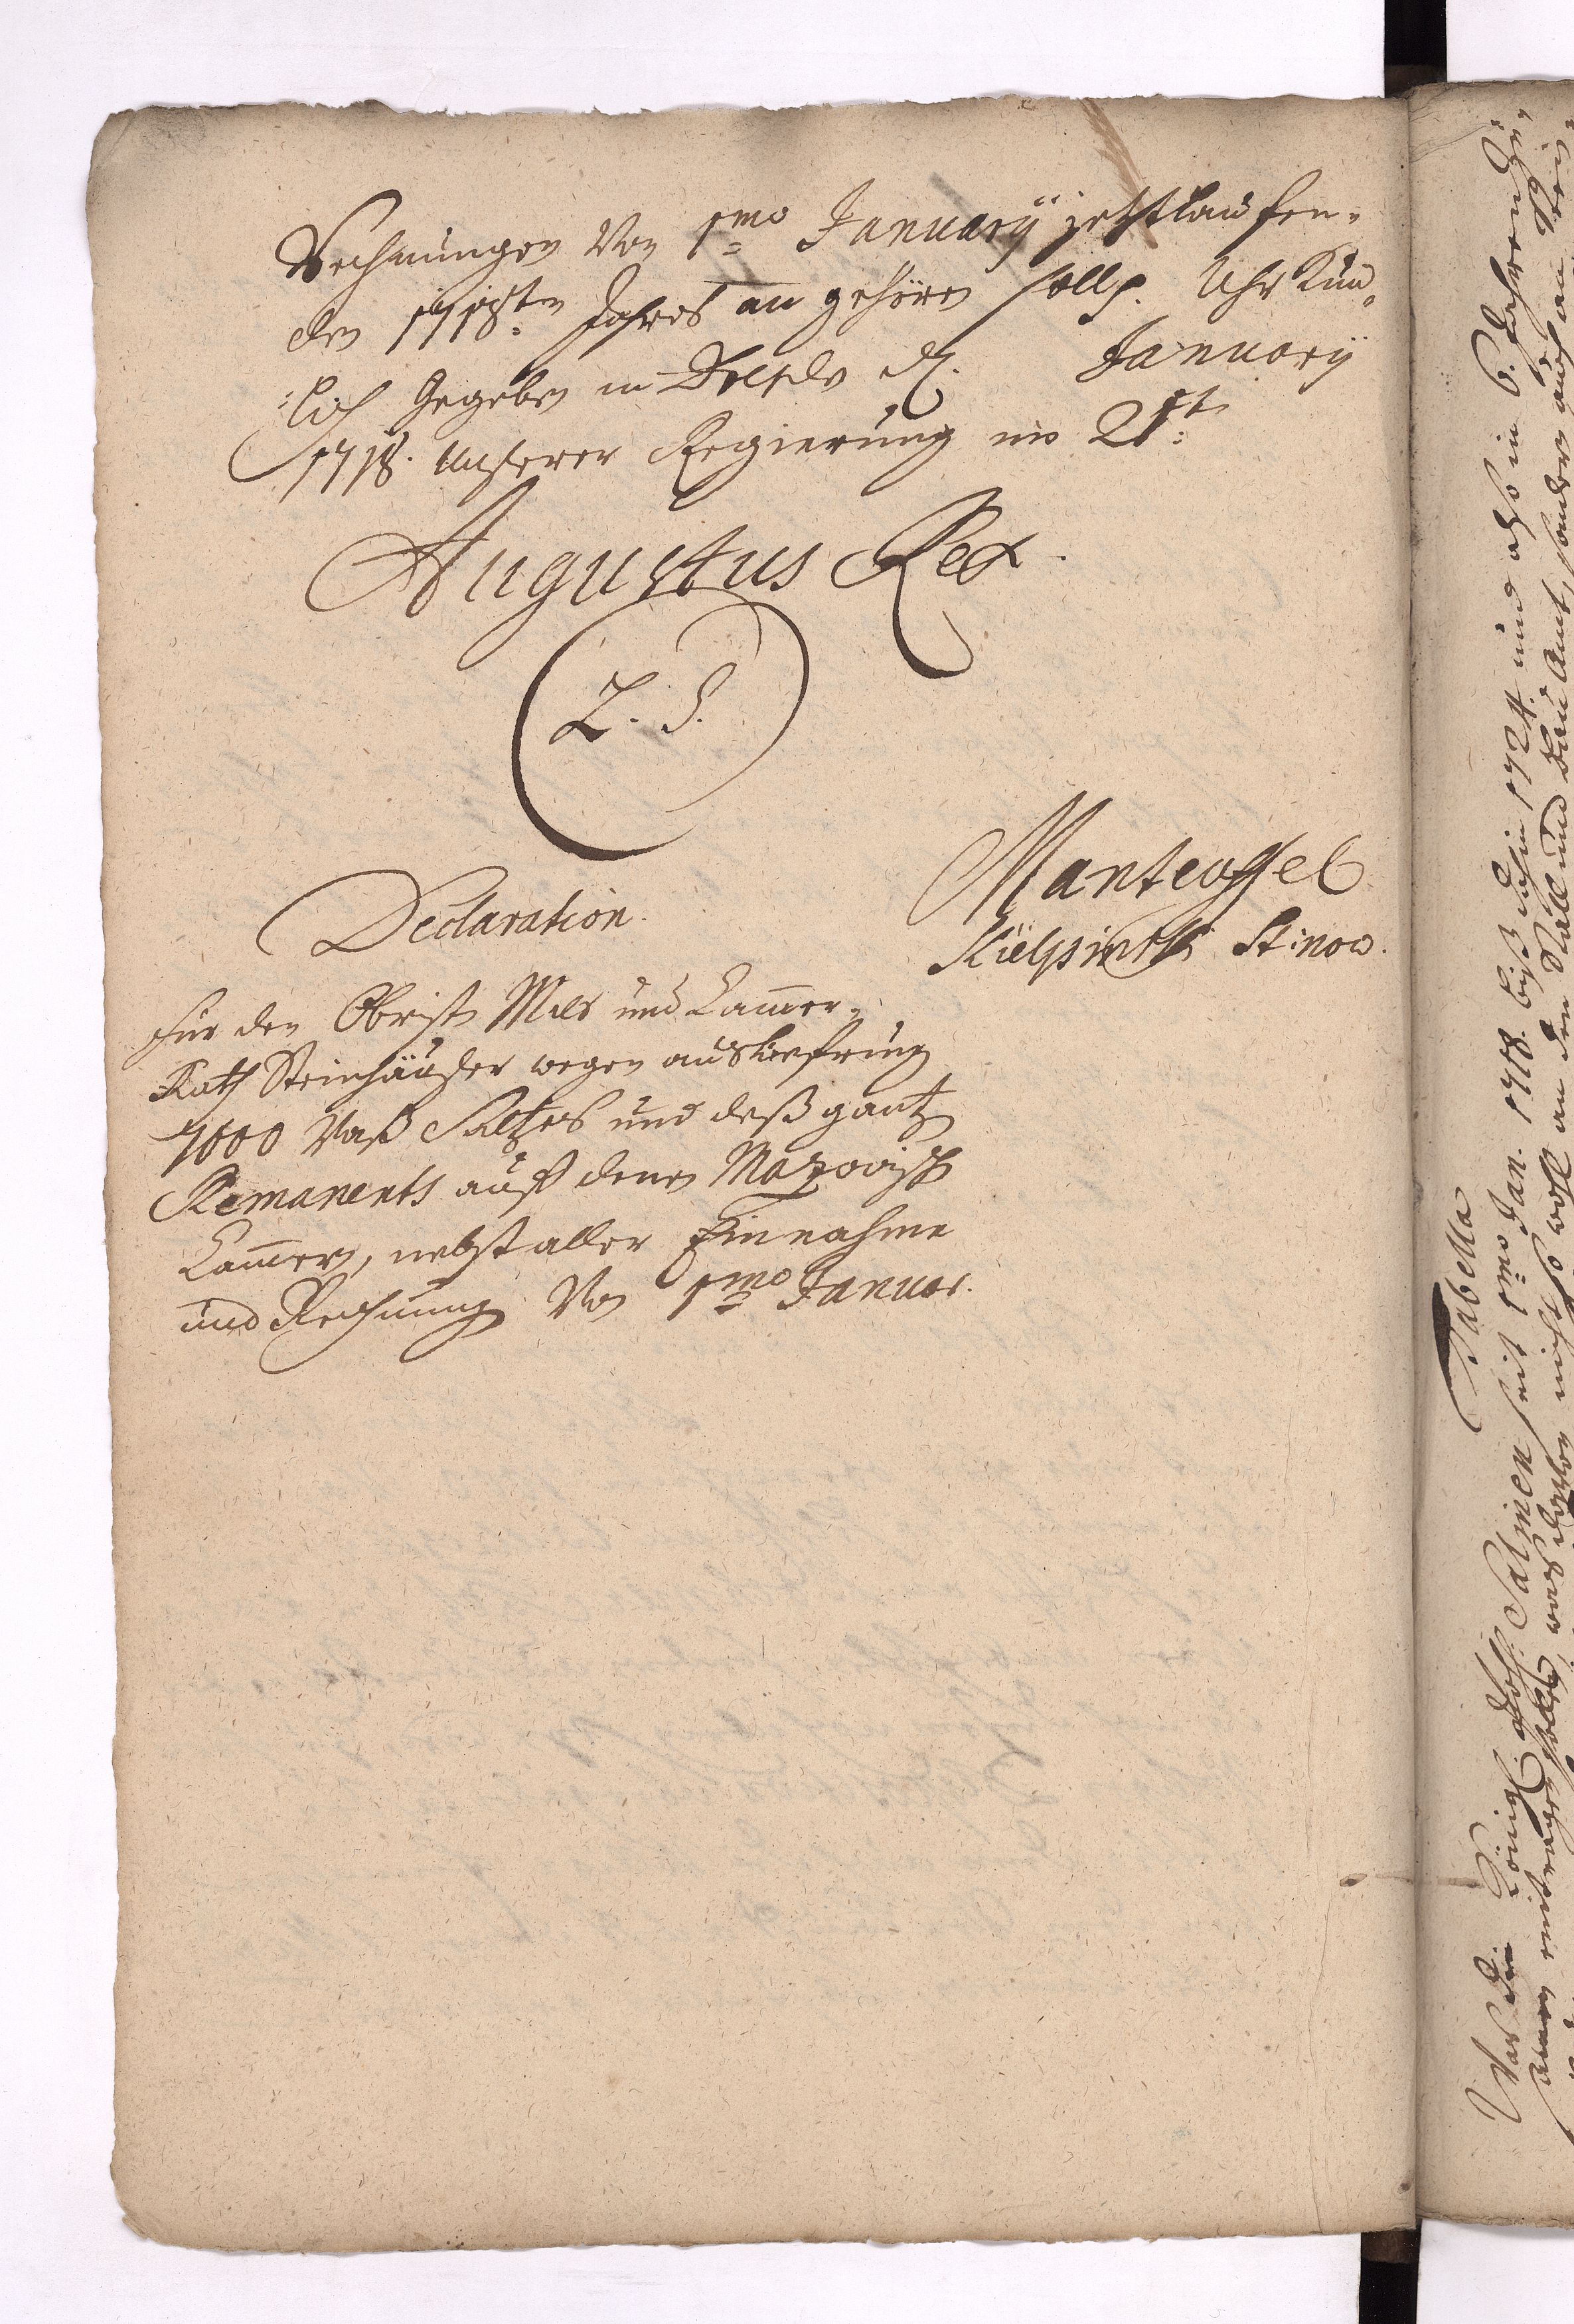 Rechnungen Von 1mo January jetztlaufen-
den 1718ten Jahres an gehören soll. Uhrkünd-
lich Gegeben in Dresden d. January
1718. Unserer Regierung im 21t
Augustus Rex.
L. S.
Manteuffel
Declaration.
für den Obrist Mils und Cammer-
Rath Steinhäuser wegen auslieferung
7000 Vaß Saltzes und deß gantz
Remanents auß denen Mazovisch
Cammern, nebst aller Einnahme
und Rechnung Von 1mo Januar.
Tabella
Was die Königl. Pohl. Salinen seit 1mo Jan. 1718. biß dahin 1724. und also in 6. Jahren